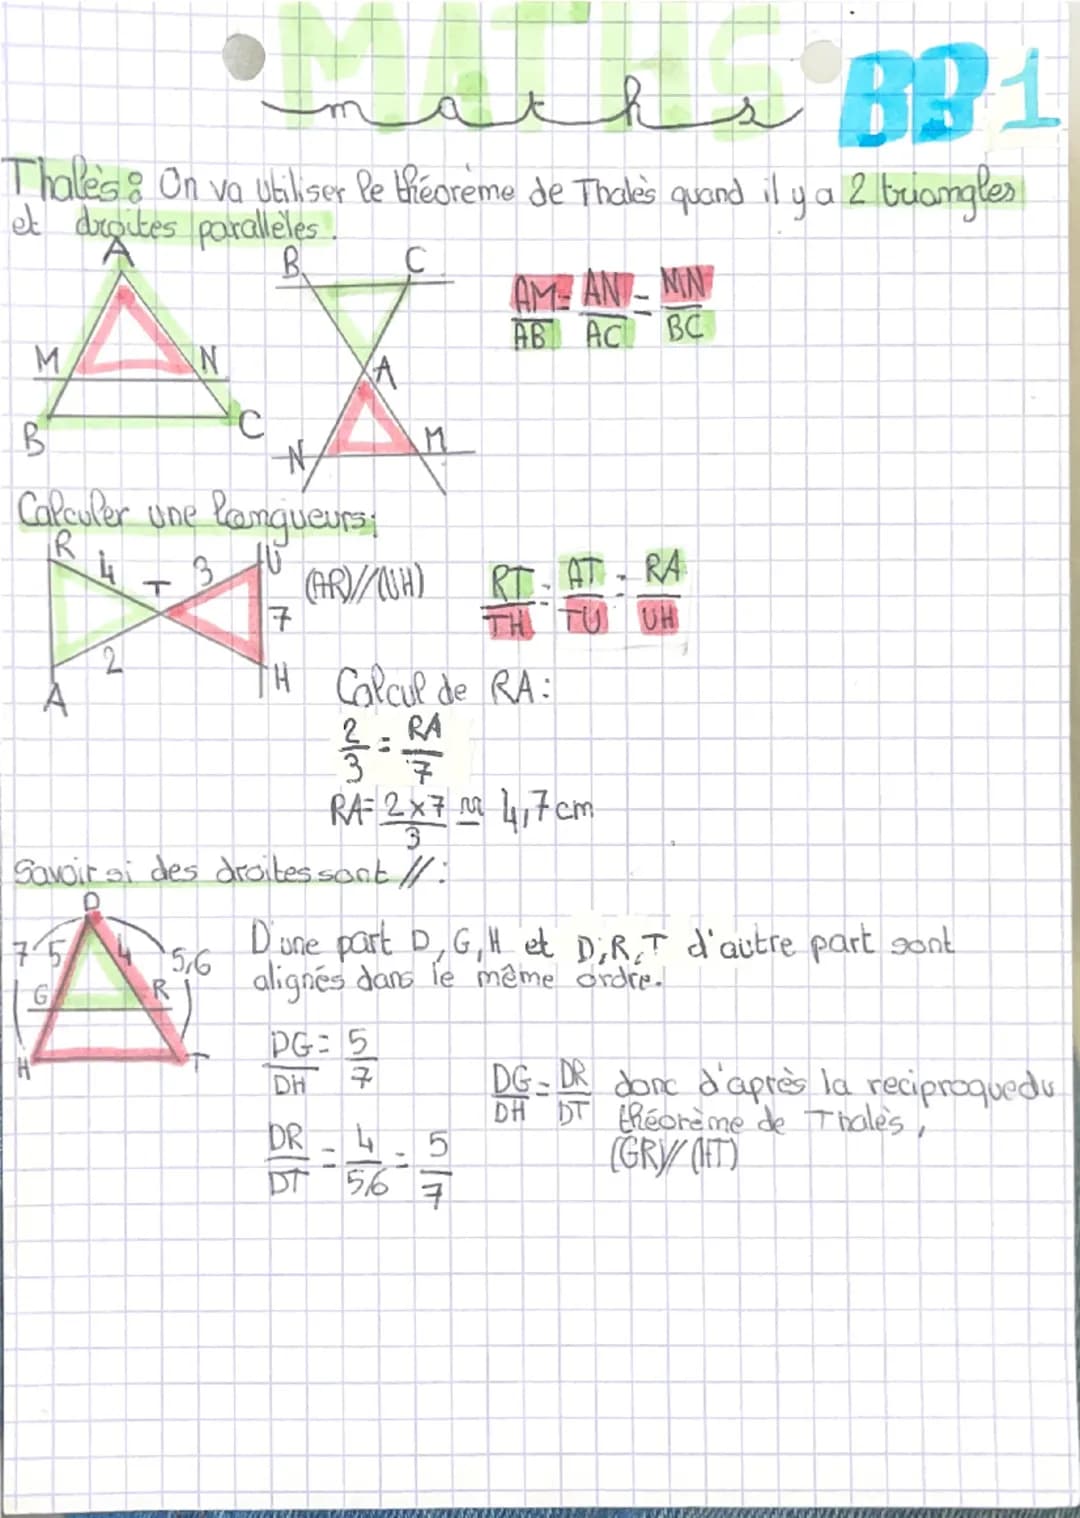 MATHS
maths
BB1
Thalès : On va utiliser le théorème de Thalès quand il y a 2 triangles
et droites parallèles.
A
M N
B C
B C
A
N M
AM/AB = AN/AC = MN/BC
Calculer une longueurs :
R 4 T 3 U
7
2
A H
(AR)//(UH)
RT/TH = AT/TU = RA/UH
Calcul de RA :
2/3 = RA/7
RA = 2×7/3 ≈ 4,7 cm
Savoir si des droites sont // :
D
7 5 4 5,6
G R
H T
D'une part D, G, H et D, R, T d'autre part sont
alignés dans le même ordre.
DG/DH = 5/7
DR/DT = 4/5,6 = 5/7
DG/DH = DR/DT donc d'après la reciproque du
théorème de Thalès,
(GR)//(HT)